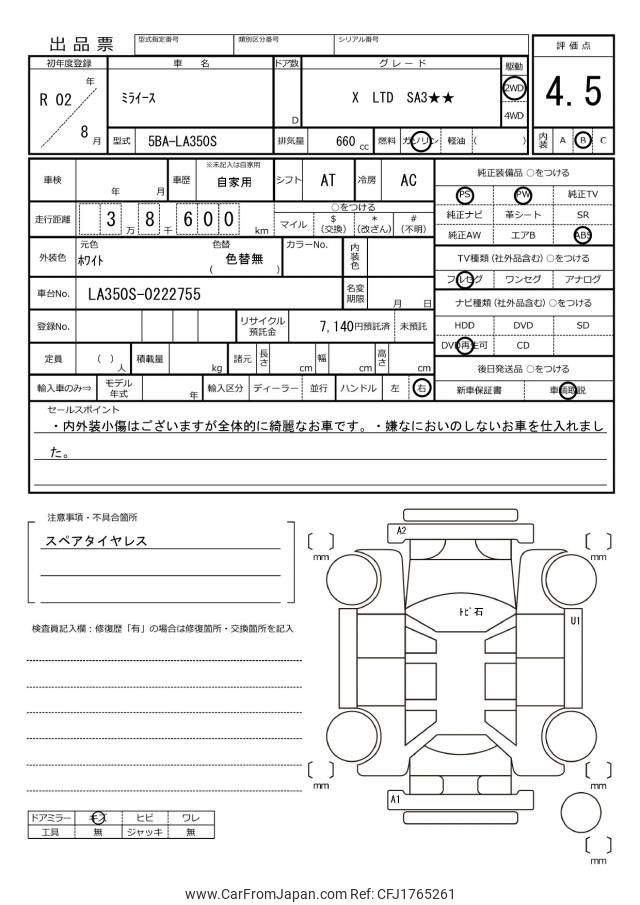 出品票 型式指定番号 類別区分番号 シリアル番号
評価点
4.5
初年度登録 車名 ドア数 グレード 駆動
R 02 年 8 月
ﾐﾗｲｰｽ D X LTD SA3★★ 2WD 4WD
型式 5BA-LA350S 排気量 660 cc 燃料 ガソリン 軽油 ( ) 内装 A B C
車検 年 月 車歴 ※未記入は自家用 自家用 シフト AT 冷房 AC
走行距離 3 8 万 千 6 0 0 km
○をつける
マイル $(交換) *(改ざん) #(不明)
外装色 元色 ﾎﾜｲﾄ 色替 ( 色替無 ) カラーNo. 内装色
車台No. LA350S-0222755 名変期限 月 日
登録No. リサイクル預託金 7,140円預託済 未預託
定員 ( ) 人 積載量 kg 諸元 長さ cm 幅 cm 高さ cm
輸入車のみ⇒ モデル年式 年 輸入区分 ディーラー 並行 ハンドル 左 右
純正装備品 ○をつける
PS PW 純正TV
純正ナビ 革シート SR
純正AW エアB ABS
TV種類 (社外品含む) ○をつける
フルセグ ワンセグ アナログ
ナビ種類 (社外品含む) ○をつける
HDD DVD SD
DVD再生可 CD
後日発送品 ○をつける
新車保証書 車輌取説
セールスポイント
・内外装小傷はございますが全体的に綺麗なお車です。・嫌なにおいのしないお車を仕入れまし
た。
注意事項・不具合箇所
スペアタイヤレス
検査員記入欄：修復歴「有」の場合は修復箇所・交換箇所を記入
ドアミラー キズ ヒビ ワレ
工具 無 ジャッキ 無
A2
mm
mm
ﾄﾋﾞ石
U1
mm
mm
A1
mm
www.CarFromJapan.com Ref: CFJ1765261